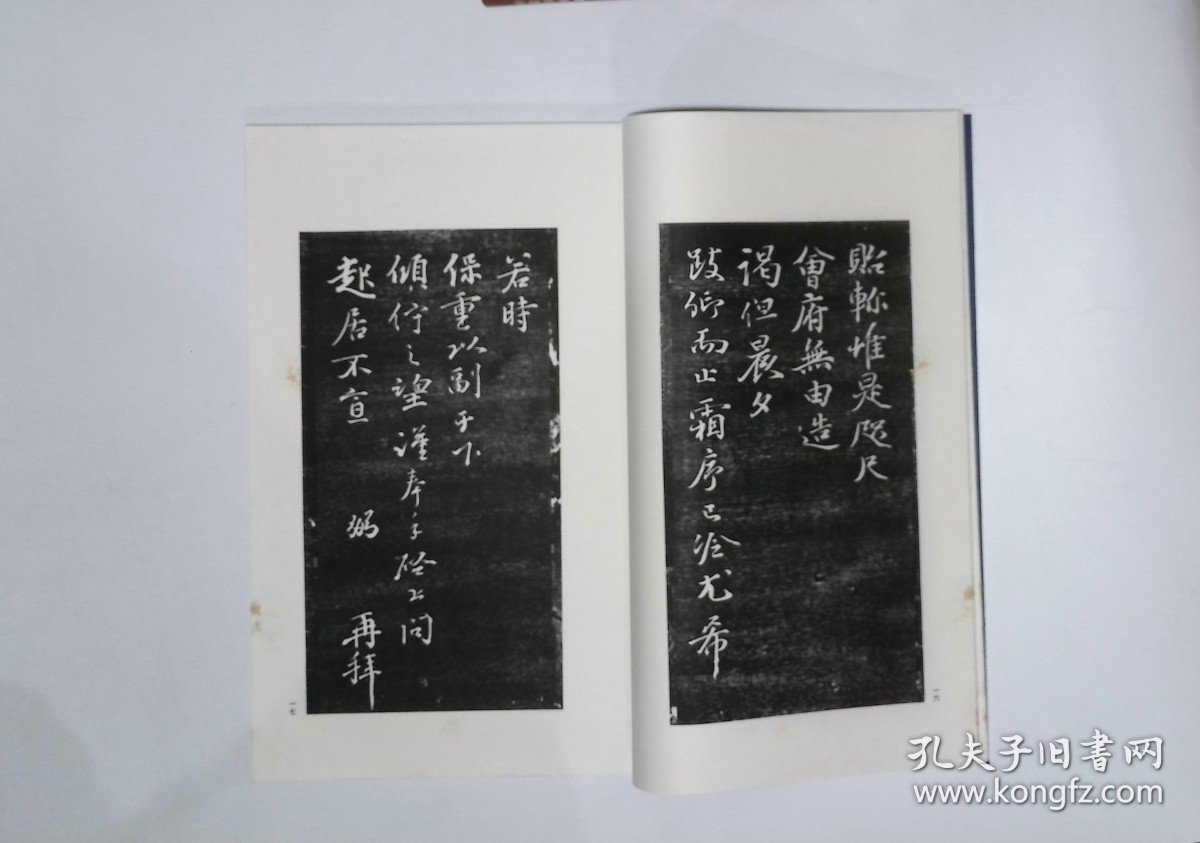 貽軫惟是咫尺
會府無由造
謁但晨夕
跂仰而止霜序已冷尤希
若時
保重以副於下
傾佇之望謹奉手啓上問
起居不宣 弼 再拜
一六
一七
孔夫子旧书网
www.kongfz.com